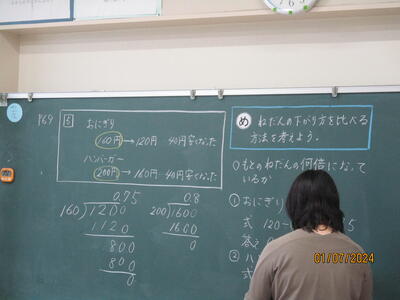 P69 5 おにぎり
160円→120円 40円安くなった
ハンバーガー
200円→160円 40円安くなった
0.75
160)1200
1120
800
800
0
0.8
200)1600
1600
0
め ねだんの下がり方を比べる
方法を考えよう。
○もとのねだんの何倍になって
いるか
①おにぎり
式 120÷
5
答え
②ハ
式
01/07/2024